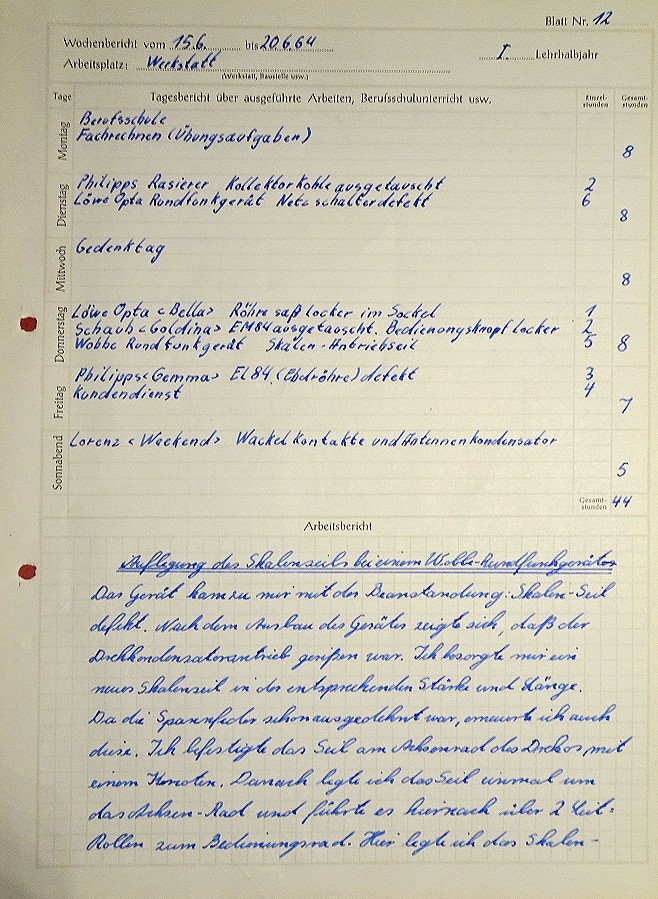 Blatt Nr. 12
Wochenbericht vom 15.6. bis 20.6.64
I. Lehrhalbjahr
Arbeitsplatz: Werkstatt
(Werkstatt, Baustelle usw.)
Tage Tagesbericht über ausgeführte Arbeiten, Berufsschulunterricht usw. Einzel-stunden Gesamt-stunden
Montag
Berufsschule
Fachrechnen (Übungsaufgaben)
8
Dienstag
Philipps Rasierer Kollektorkohle ausgetauscht 2
Löwe Opta Rundfunkgerät Netzschalter defekt 6
8
Mittwoch
Gedenktag
8
Donnerstag
Löwe Opta <Bella> Röhre saß locker im Sockel 1
Schaub <Goldina> EM84 ausgetauscht. Bedienungsknopf locker 2
Wobbe Rundfunkgerät Skalen-Antriebseil 5 8
Freitag
Philipps <Gemma> EL84 (Endröhre) defekt 3
Kundendienst 4
7
Sonnabend
Lorenz <Weekend> Wackelkontakte und Antennenkondensator
5
Gesamt-stunden 44
Arbeitsbericht
Auflegung des Skalenseils bei einem Wobbe-Rundfunkgerätes
Das Gerät kam zu mir mit der Beanstandung: Skalen-Seil
defekt. Nach dem Ausbau des Gerätes zeigte sich, daß der
Drehkondensatorantrieb gerißen war. Ich besorgte mir ein
neues Skalenseil in der entsprechenden Stärke und Länge.
Da die Spannfeder schon ausgedehnt war, erneuerte ich auch
diese. Ich befestigte das Seil am Achsenrad des Drekos, mit
einem Knoten. Danach legte ich das Seil einmal um
das Achsen-Rad und führte es hiernach über 2 Leit-
Rollen zum Bedienungsrad. Hier legte ich das Skalen-